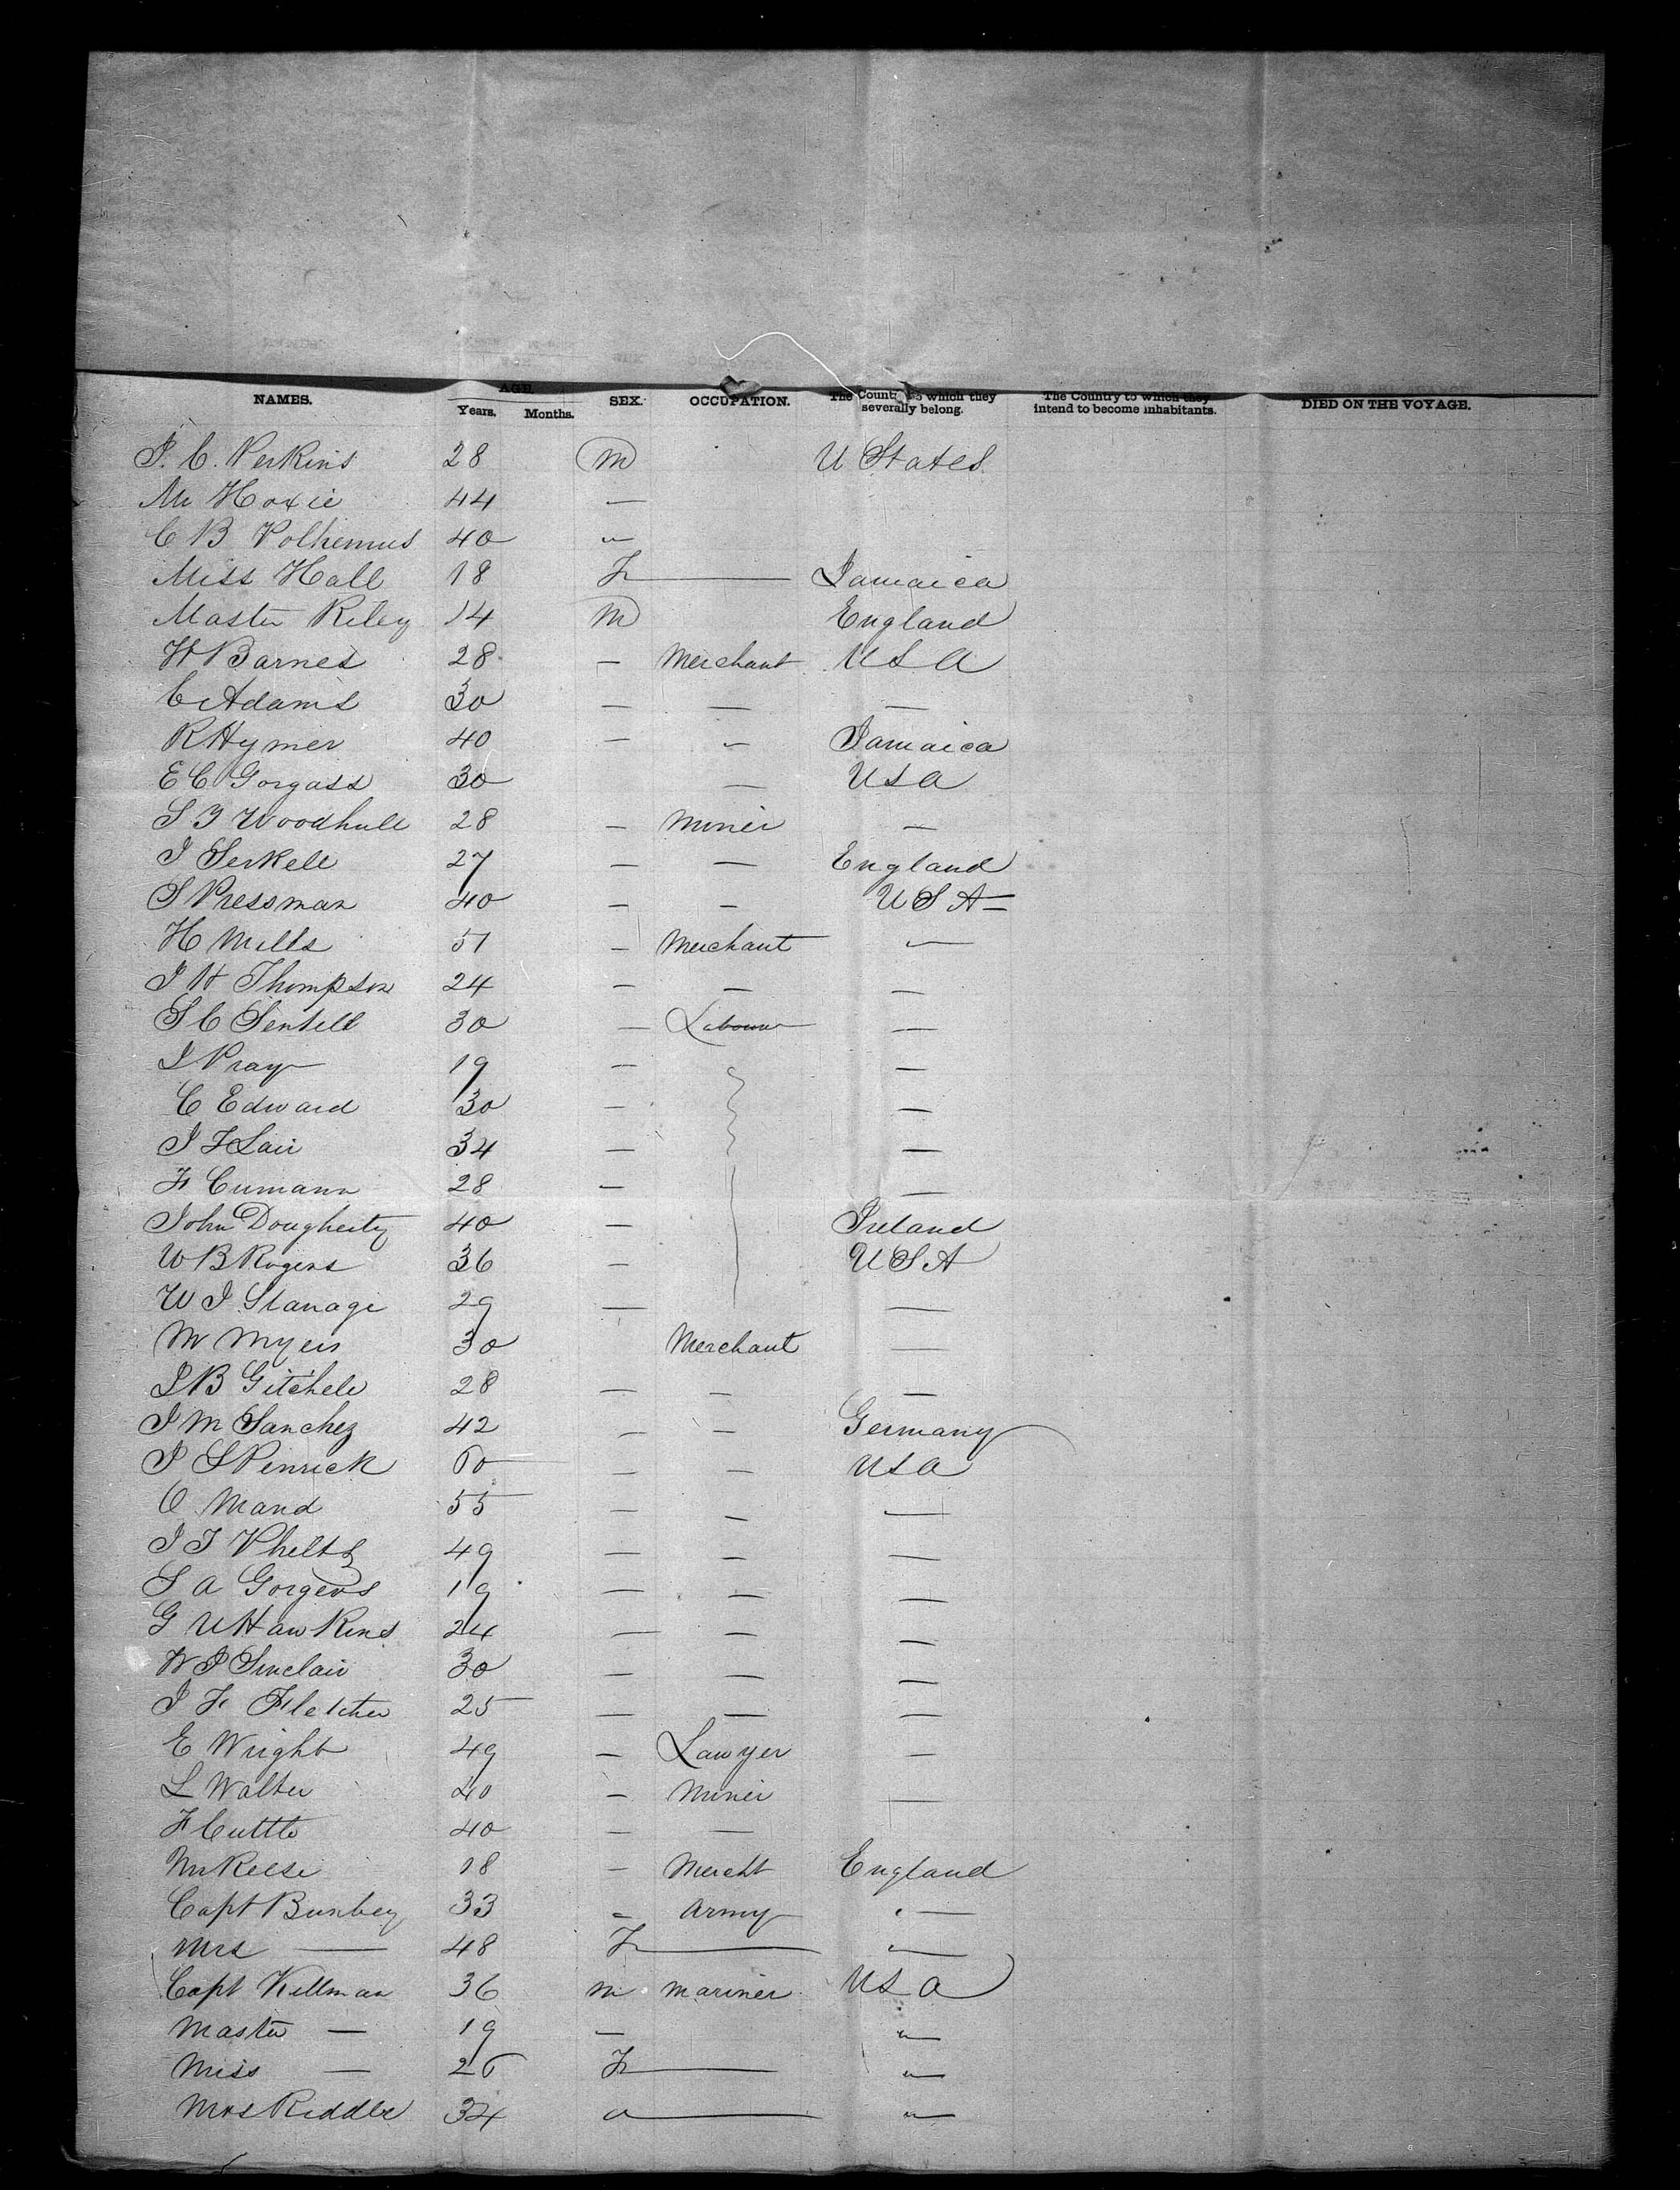 NAMES. AGE. Years. Months. SEX. OCCUPATION. The Country to which they severally belong. The Country to which they intend to become inhabitants. DIED ON THE VOYAGE.
J. C. Perkins 28 M U States
Mr Hoxie 44 —
C B Polhemus 40 "
Miss Hall 18 F — Jamaica
Master Riley 14 M England
W Barnes 28 — Merchant USA
C Adams 30 — — —
R Hymer 40 — " Jamaica
E C Gorgass 30 — USA
S Woodhull 28 — Miner —
J Serkell 27 — — England
S Pressman 40 — — USA
H Mills 51 — Merchant —
J H Thompson 24 — — —
S C Sentell 30 — Labourer —
J Pray 19 — —
C Edward 30 — —
J F Lair 34 — —
F Cumann 28 — —
John Dougherty 40 — Ireland
W B Rogers 36 — USA
W J Stanage 29 — —
M Myers 30 Merchant —
J B Gitchele 28 — — —
J M Sanchez 42 — — Germany
J S Penrick 60 — — USA
O Mand 55 — — —
J T 49 — — —
S A Gorgens 19 — — —
G U Hawkins 24 — — —
W J Sinclair 30 — — —
J F Fletcher 25 — — —
E Wright 49 — Lawyer —
L Walter 40 — Miner —
F Cuttle 40 — —
Mr Reese 18 — Mercht England
Capt Bunbey 33 " Army " —
Mrs — 48 F — "
Capt Killman 36 m mariner USA
Master — 19 — "
Miss — 26 F — "
Mrs Riddle 34 " — "